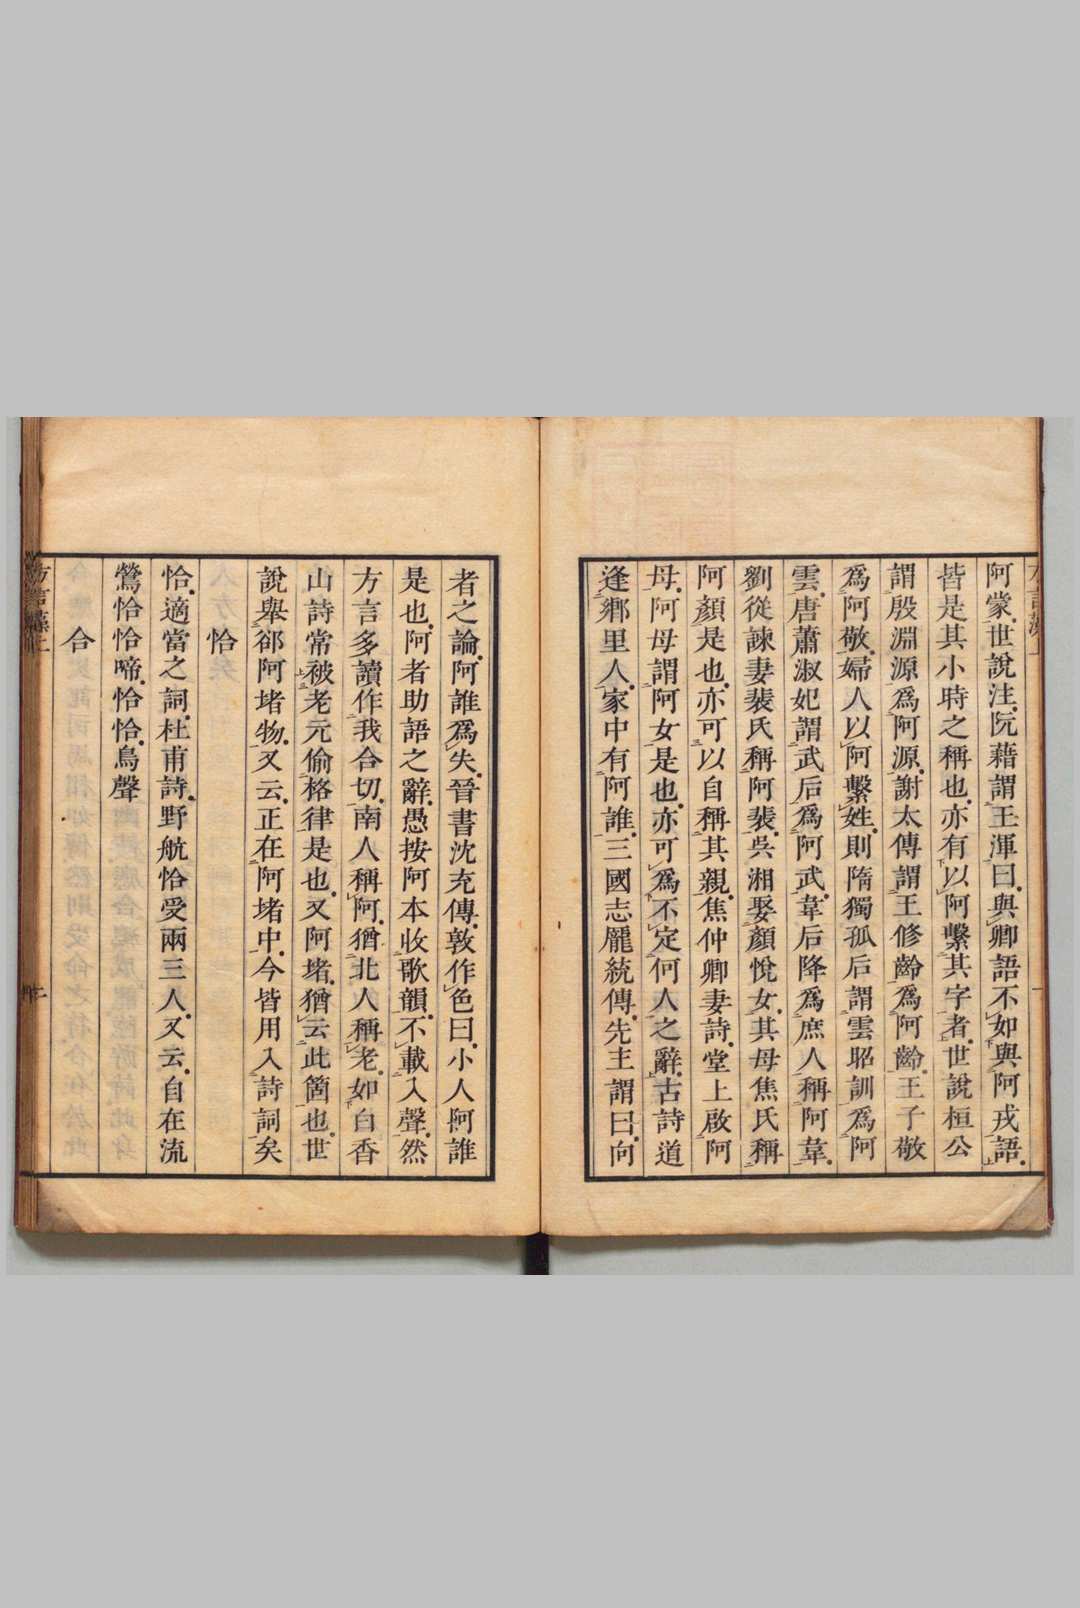 阿蒙。世說注。阮藉謂王渾曰。與卿語不如與阿戎語。
皆是其小時之稱也。亦有以阿繫其字者。世說桓公
謂殷淵源爲阿源。謝太傳謂王修齡爲阿齡。王子敬
爲阿敬。婦人以阿繫姓。則隋獨孤后謂雲昭訓爲阿
雲。唐蕭淑妃謂武后爲阿武。韋后降爲庶人稱阿韋。
劉從諫妻裴氏稱阿裴。吳湘娶顏悅女。其母焦氏稱
阿顏是也。亦可以自稱其親。焦仲卿妻詩。堂上啟阿
母。阿母謂阿女是也。亦可爲不定何人之辭。古詩道
逢鄉里人。家中有阿誰。三國志龐統傳。先主謂曰。向
者之論。阿誰爲失。晉書沈充傳。敦作色曰。小人阿誰
是也。阿者助語之辭。愚按阿本收歌韻。不載入聲。然
方言多讀作我合切。南人稱阿。猶北人稱老。如白香
山詩常被老元偷格律是也。又阿堵。猶云此箇也。世
說舉郤阿堵物。又云。正在阿堵中。今皆用入詩詞矣
恰
恰。適當之詞。杜甫詩。野航恰受兩三人。又云。自在流
鶯恰恰啼。恰恰。鳥聲
合
方言藻上